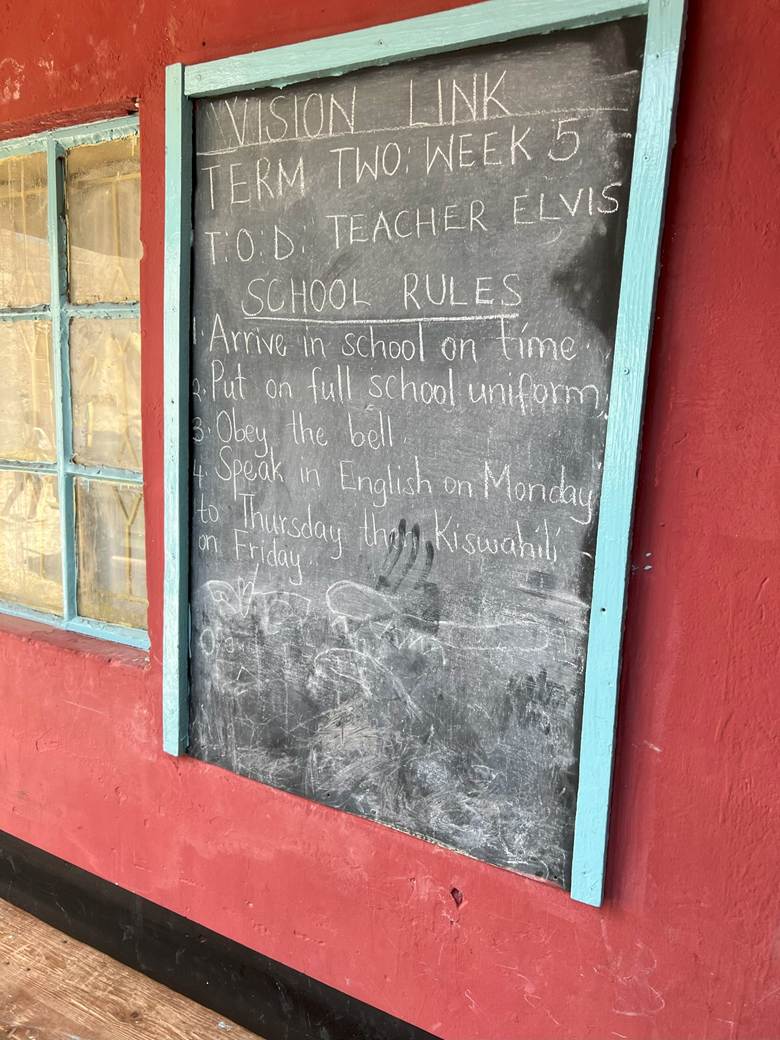 VISION LINK
TERM TWO: WEEK 5
T:O:D: TEACHER ELVIS
SCHOOL RULES
1. Arrive in school on time.
2. Put on full school uniform,
3. Obey the bell.
4. Speak in English on Monday
to Thursday Kiswahili
on Friday.